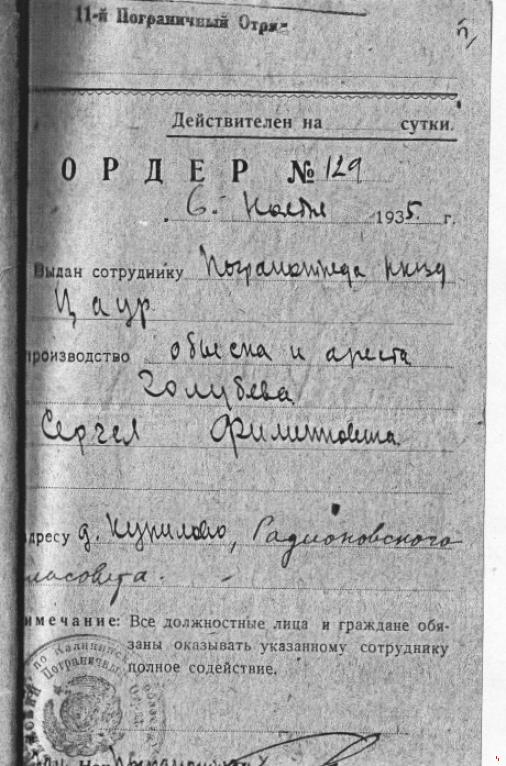 11-й Пограничный Отряд
Действителен на сутки.
ОРДЕР № 129
6. 1935. г.
Выдан сотруднику Погранотряда НКВД
Цаур
производство обыска и ареста
Голубева
Сергея
адресу д. Курилово, Радионовского
сельсовета.
имечание: Все должностные лица и граждане обя-
заны оказывать указанному сотруднику
полное содействие.
по Калининск
Пограничный